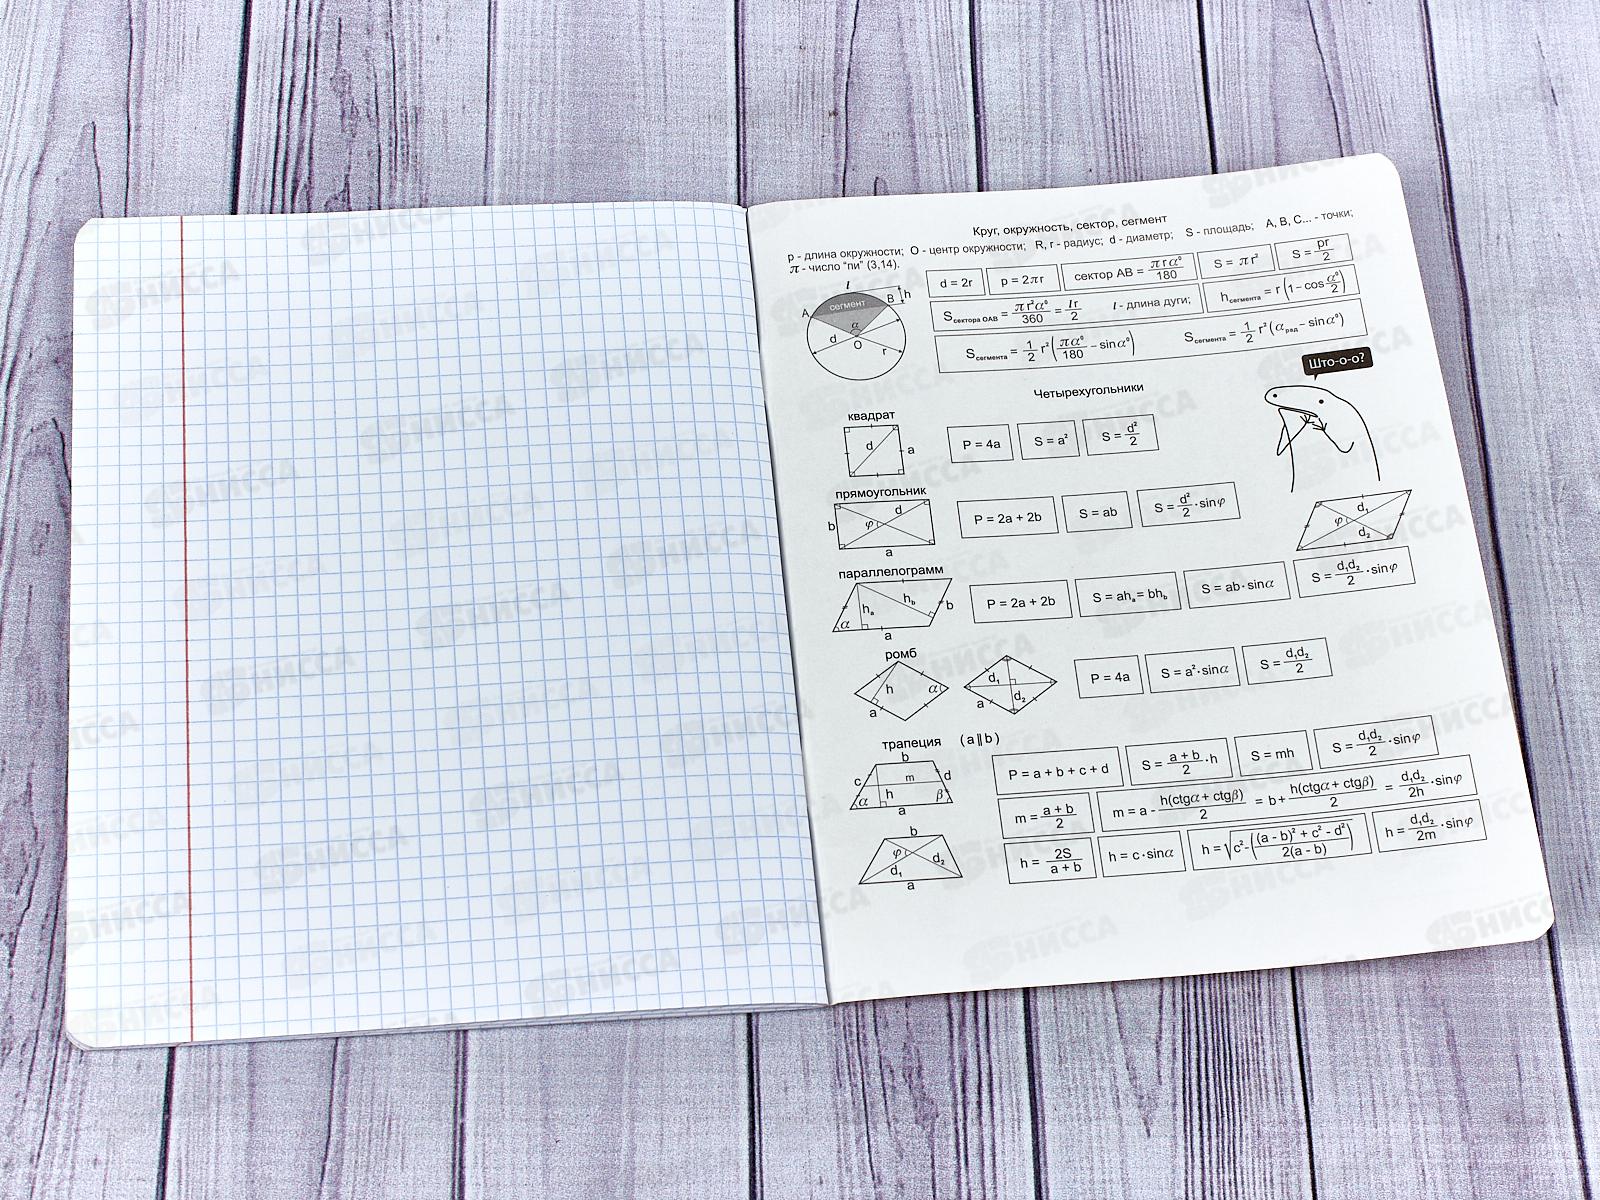 Круг, окружность, сектор, сегмент
p - длина окружности; O - центр окружности; R, r - радиус; d - диаметр; S - площадь; A, B, C... - точки;
π - число "пи" (3,14).
d = 2r p = 2πr сектор AB = πrα°/180 S = πr² S = pr/2
l h сегмент A B α d O r
Sсектора OAB = πr²α°/360 = lr/2 l - длина дуги; hсегмента = r(1 - cos α°/2)
Sсегмента = 1/2 r²(πα°/180 - sinα°) Sсегмента = 1/2 r²(αрад - sinα°)
Што-о-о?
Четырехугольники
квадрат
d a
P = 4a S = a² S = d²/2
прямоугольник
b φ d a
P = 2a + 2b S = ab S = d²/2 · sinφ
d₁ φ d₂
параллелограмм
hₐ h_b b α a
P = 2a + 2b S = ahₐ = bh_b S = ab · sinα S = d₁d₂/2 · sinφ
ромб
h α a d₁ d₂ a
P = 4a S = a² · sinα S = d₁d₂/2
трапеция (a ∥ b)
b c m d h α β a
P = a + b + c + d S = a + b/2 · h S = mh S = d₁d₂/2 · sinφ
m = a + b/2 m = a - h(ctgα + ctgβ)/2 = b + h(ctgα + ctgβ)/2 = d₁d₂/2h · sinφ
b φ d₂ d₁ a
h = 2S/a + b h = c · sinα h = √c² - ((a - b)² + c² - d²/2(a - b)) h = d₁d₂/2m · sinφ
НИССА